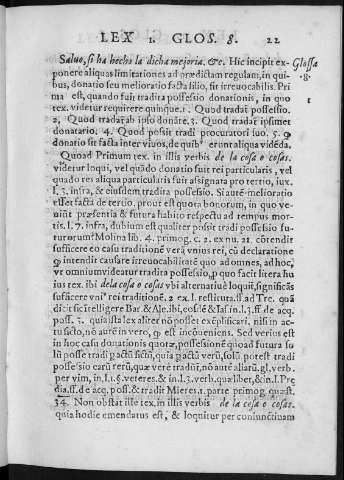 LEX 1. GLOS. 8. 22
Saluo, si ha hecho la dicha mejoria. &c. Hic incipit ex-
Glossa
8.
ponere aliquas limitationes ad prædictam regulam, in qui-
bus, donatio seu melioratio facta filio, sit irreuocabilis. Pri
ma est, quando fuit tradita possessio donationis, in quo
1
tex. videtur requirere quinque. 1. Quod tradat possessio.
2, Quod tradat ab ipso donãte. 3. Quod tradat ipsimet
donatario. 4. Quod possit tradi procuratori suo. 5. ꝙ
donatio sit facta inter viuos, de quib⁹ erunt aliqua vidẽda.
Quoad Primum tex. in illis verbis de la cosa o cosas.
videtur loqui, vel quãdo donatio fuit rei particularis, vel
quãdo res aliqua particularis fuit assignata pro tertio, iux.
l. 3. infra, & eiusdem tradita possessio. Si autẽ melioratio
esset facta de tertio, prout est quota bonorum, in quo ve-
niũt præsentia & futura habito respectu ad tempus mor-
tis. l. 7. infra, dubium est qualiter possit tradi possessio fu-
turorum? Molina lib. 4. primog. c. 2. ex nu. 21. cõtendit
sufficere eo casu traditionẽ verã vnius rei, cũ declaratione
ꝙ intendit causare irreuocabilitatẽ quo ad omnes, ad hoc,
vt omnium videatur tradita possessio, ꝓ quo facit litera hu
ius tex. ibi de la cosa o cosas vbi alternatiuè loquit, significãs
sufficere vni⁹ rei traditionẽ. 2 ex l. restituta. ff. ad Tre. quã
dicit sic intelligere Bar. & Ale. ibi, eosdẽ & Ias. in l. 3. ff. de acq.
poss. 3. quia ista lex aliter nõ posset exẽplificari. nisi in ac-
tu ficto, nõ autẽ in vero, ꝙ est incõueniens. Sed verius est
in hoc casu donationis quotæ, possessionẽ quoad futura so
lũ posse tradi ꝑ actũ fictũ, quia ꝑ actũ verũ, solũ potest tradi
possessio earũ rerũ, quæ verè tradũt, nõ autẽ aliarũ. gl. verb.
per vim, in l. 1. §. veteres. & in l. 3. verb. quælibet, & in l. Præ
dia. ff. de acq. poss. & tradit Mieres. 1. parte primog. quæst.
34. Non obstat iste tex. in illis verbis de la cosa o cosas.
quia hodie emendatus est, & loquitur per coniunctiuam